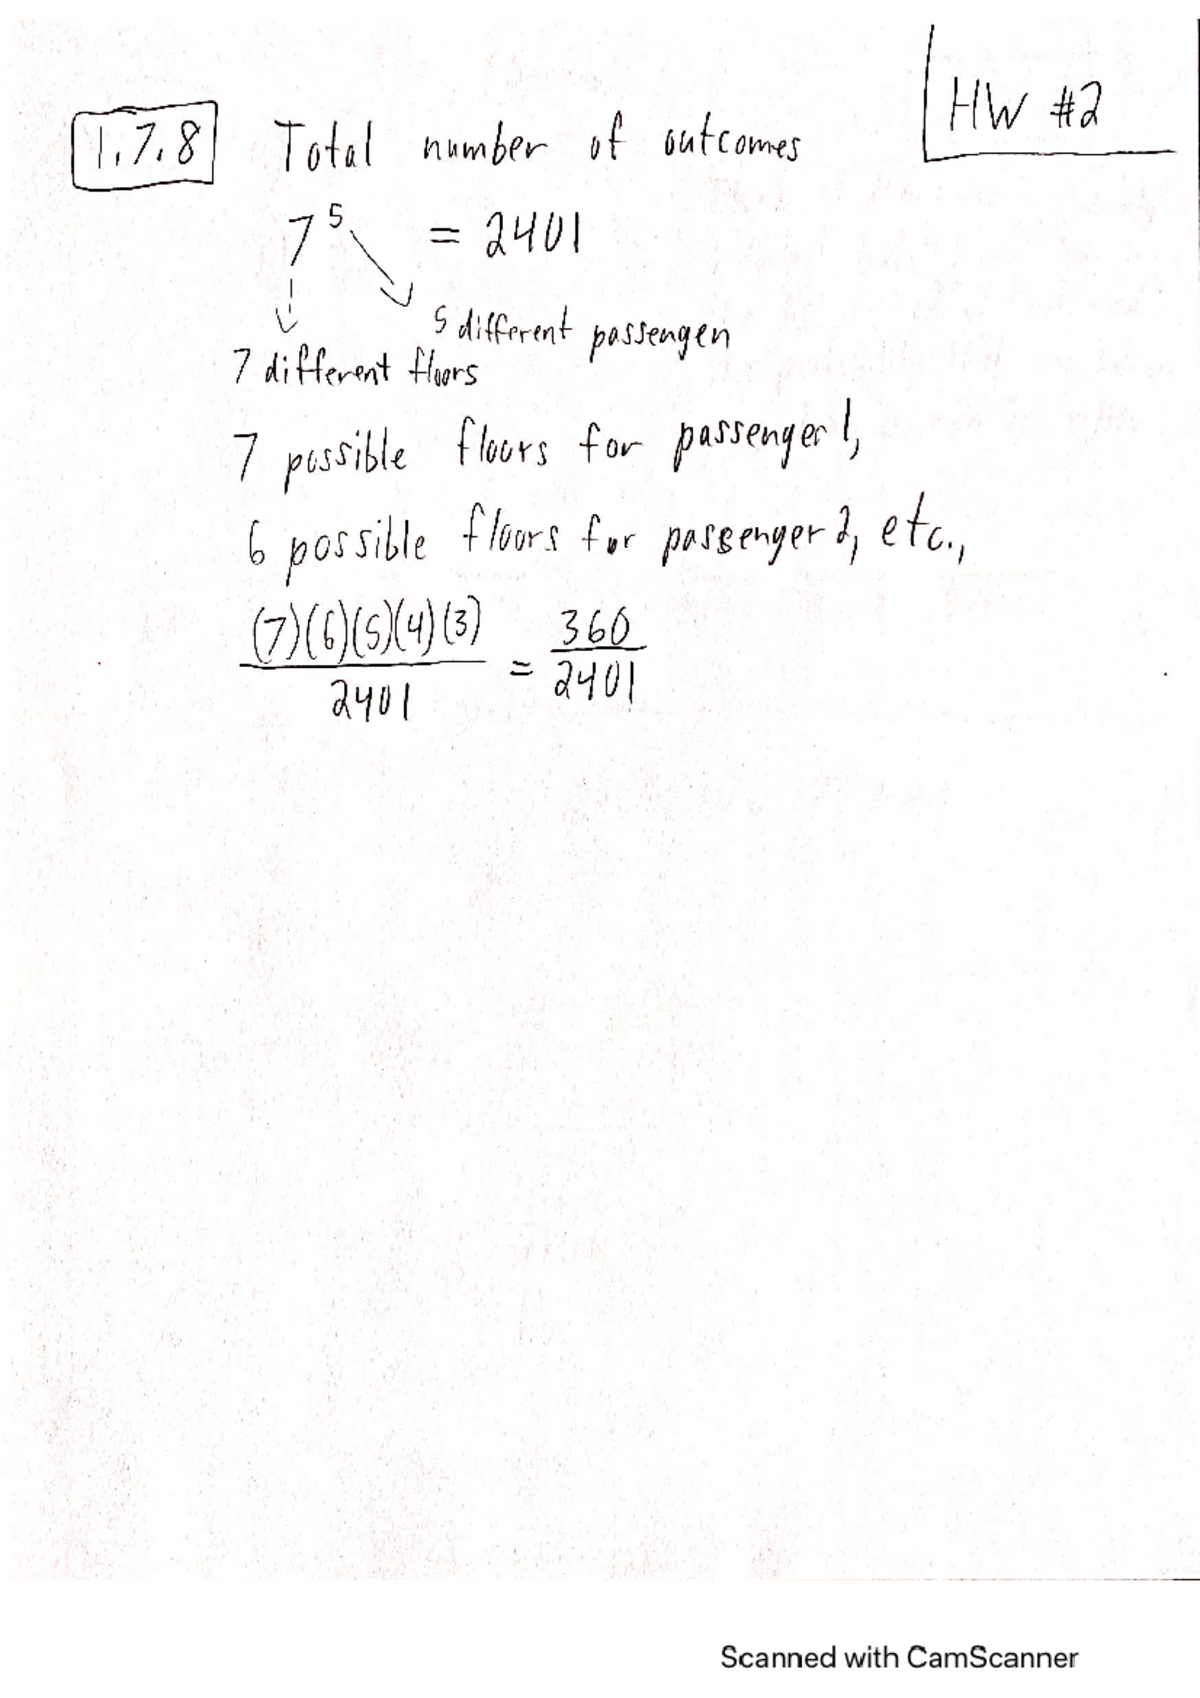 HW #2
1.7.8 Total number of outcomes
7^5 = 2401
5 different passengen
7 different floors
7 possible floors for passenger 1,
6 possible floors for passenger 2, etc.,
(7)(6)(5)(4)(3) / 2401 = 360 / 2401
Scanned with CamScanner